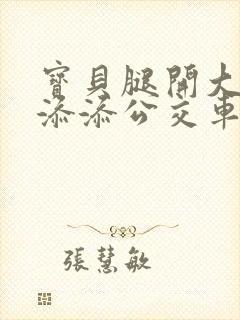 寶貝腿開大
添添公交車
張慧敏